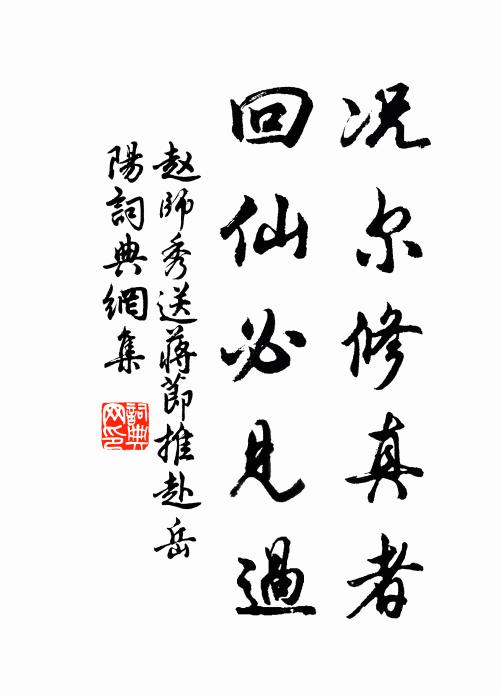 况尔修真者
回仙必见過
赵師秀送蔣節推赴岳
陽詞典網集
詞典
网印